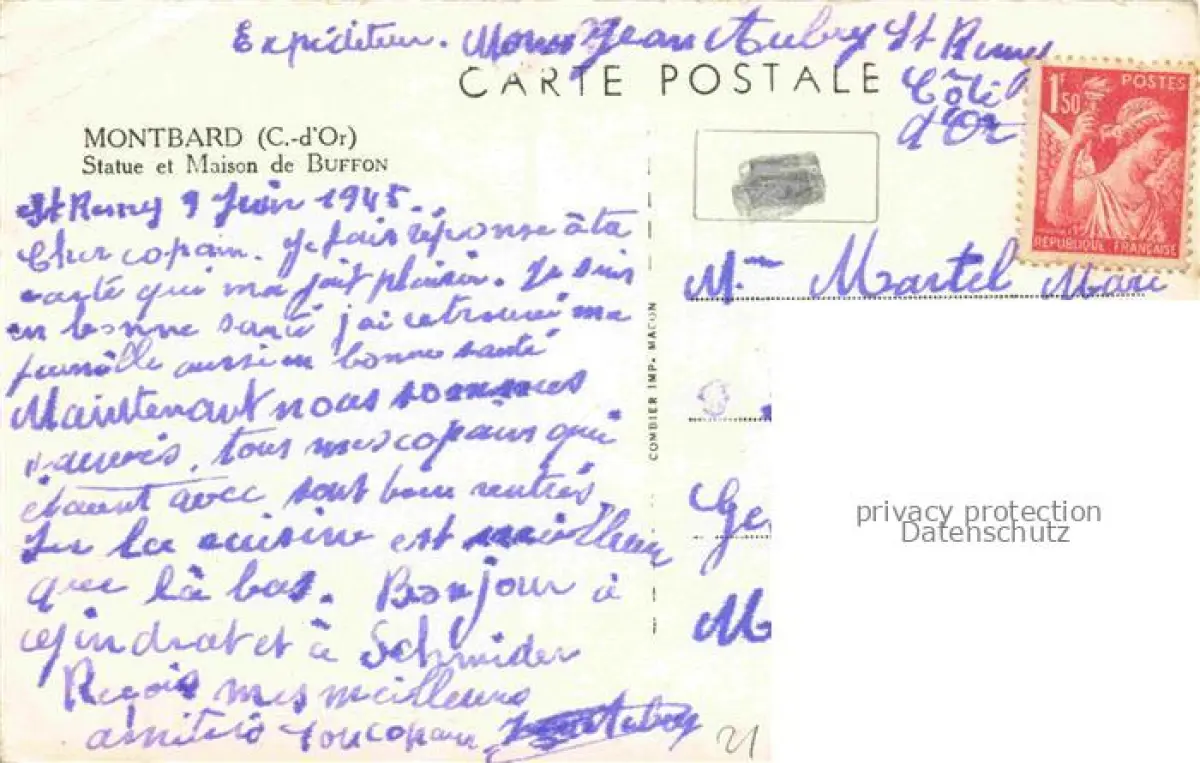 Expediteur. Mons Jean Aubry St Remy
CARTE POSTALE
Côte
d'Or
1F
50
POSTES
RÉPUBLIQUE FRANÇAISE
MONTBARD (C.-d'Or)
Statue et Maison de BUFFON
St Remy 9 Juin 1945.
Cher copain. Je fais réponse à ta
carte qui ma fait plaisir. Je suis
en bonne santé j'ai retrouvé ma
famille aussi en bonne santé
Maintenant nous sommes
tous mes copains qui
étaient avec sont bien rentrés.
Ici la cuisine est meilleur
que là bas. Bonjour à
et à Schneider
Reçois mes meilleures
amitiés ton copain Aubry
21
COMBIER IMP. MACON
Mr Martel Marc
Ge
M
privacy protection
Datenschutz